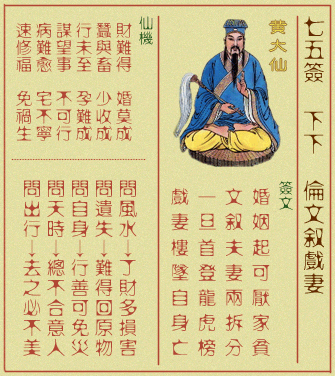 七五簽 下下 倫文叙戲妻
黄大仙
簽文
婚姻起可厭家貧
文叙夫妻兩拆分
一旦首登龍虎榜
戲妻樓墜自身亡
仙機
財難得 婚莫成
蠶與畜 少收成
行未至 孕難成
謀望事 不可行
病難愈 宅不寧
速修福 免禍生
問風水→了財多損害
問遺失→難得回原物
問自身→行善可免災
問天時→總不合意人
問出行→去之必不美